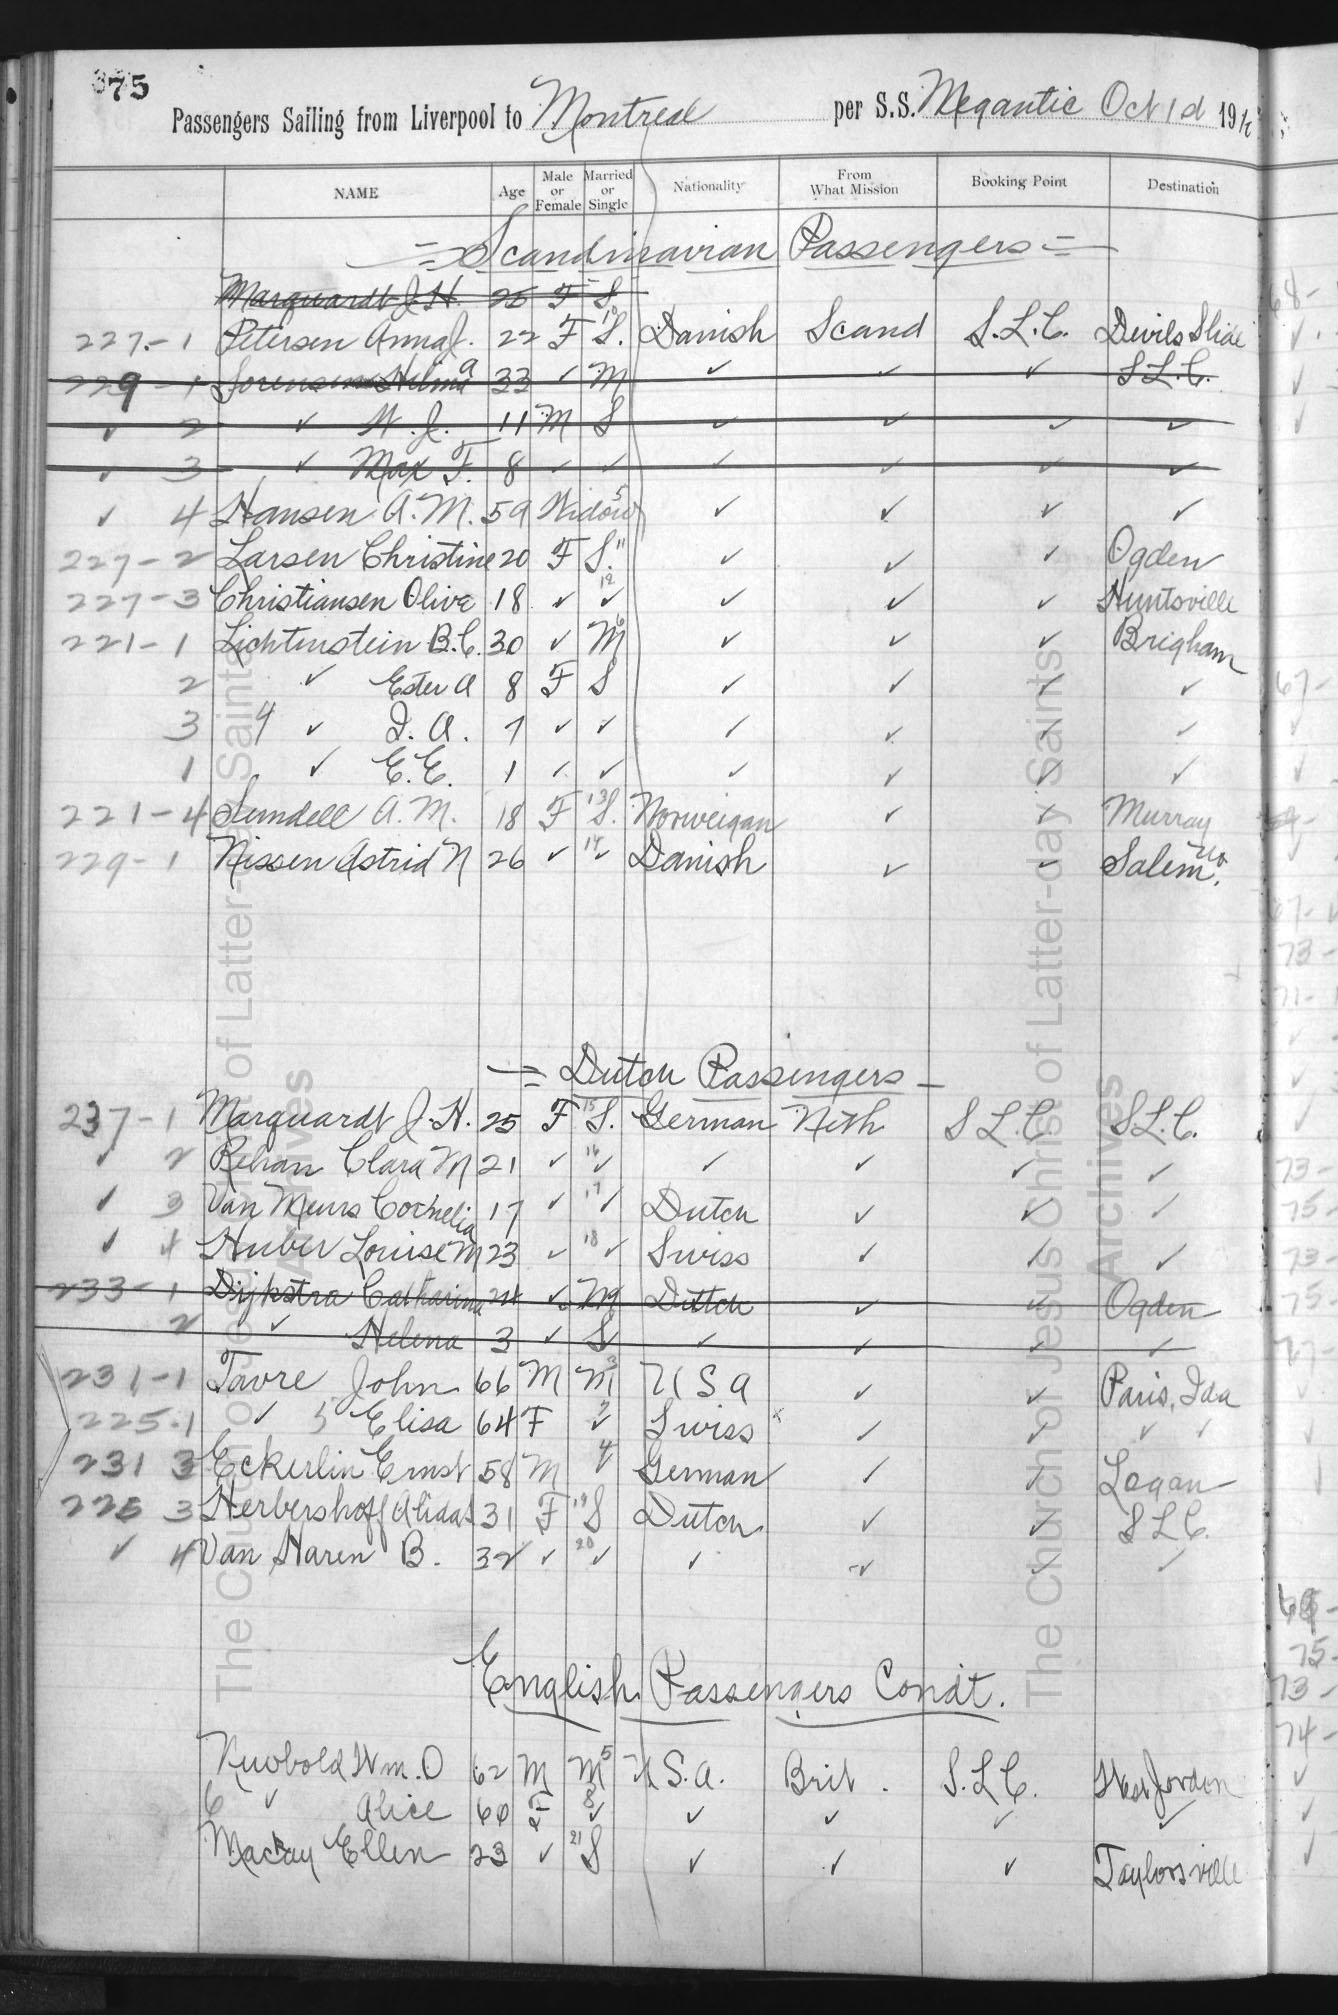 375
Passengers Sailing from Liverpool to Montreal per S.S. Megantic Oct 1d 191
NAME Age Male or Female Married or Single Nationality From What Mission Booking Point Destination
= Scandinavian Passengers =
Marquardt J.H. 25 F S
227-1 Petersen Anna J. 22 F S. Danish Scand S.L.C. Devils Slide
229-1 Sorensen Hilma 33 ✓ M ✓ ✓ ✓ S.L.C.
✓ 2 ✓ W.J. 11 M S ✓ ✓ ✓ ✓
✓ 3 ✓ Max F. 8 ✓ ✓ ✓ ✓ ✓ ✓
✓ 4 Hansen A.M. 59 Widow 5 ✓ ✓ ✓ ✓
227-2 Larsen Christine 20 F S. 11 ✓ ✓ ✓ Ogden
227-3 Christiansen Olive 18 ✓ 12 ✓ ✓ ✓ ✓ Huntsville
221-1 Lichtenstein B.C. 30 ✓ M 6 ✓ ✓ ✓ Brigham
2 ✓ Ester A 8 F S ✓ ✓ ✓ ✓
3 4 ✓ I.A. 7 ✓ ✓ ✓ ✓ ✓ ✓
1 ✓ E.E. 1 ✓ ✓ ✓ ✓ ✓ ✓
221-4 Sundell A.M. 18 F 13 S. Norweigan ✓ ✓ Murray
229-1 Nissen Astrid N 26 ✓ 14 ✓ Danish ✓ ✓ Salem
= Dutch Passengers -
237-1 Marquardt J.H. 25 F 15 S. German Neth S.L.C. S.L.C.
✓ 2 Rehan Clara M 21 ✓ 16 ✓ ✓ ✓ ✓ ✓
✓ 3 Van Meurs Cornelia 17 ✓ 17 ✓ Dutch ✓ ✓ ✓
✓ 4 Huber Louise M 23 ✓ 18 ✓ Swiss ✓ ✓ ✓
233-1 Dijkstra Catharina 24 ✓ M Dutch ✓ ✓ Ogden
2 ✓ Helena 3 ✓ S ✓ ✓ ✓ ✓
231-1 Tavre John 66 M M 3 U S A ✓ ✓ Paris, Ida
225-1 ✓ 5 Elisa 64 F 7 ✓ Swiss x ✓ ✓ ✓ ✓
231 3 Eckerlin Ernst 58 M 4 ✓ German ✓ ✓ Logan
225 3 Herbershoff Alida 31 F 19 S Dutch ✓ ✓ S.L.C.
✓ 4 Van Haren B. 32 ✓ 20 ✓ ✓ ✓ ✓ ✓
English Passengers Condt.
Newbold Wm. O 62 M M 5 U.S.A. Brit. S.L.C. West Jordon
6 ✓ Alice 60 F 8 ✓ ✓ ✓ ✓ ✓
Mackay Ellen 23 ✓ 21 S ✓ ✓ ✓ Taylorsville
The Church of Jesus Christ of Latter-day Saints
Archives
The Church of Jesus Christ of Latter-day Saints
Archives